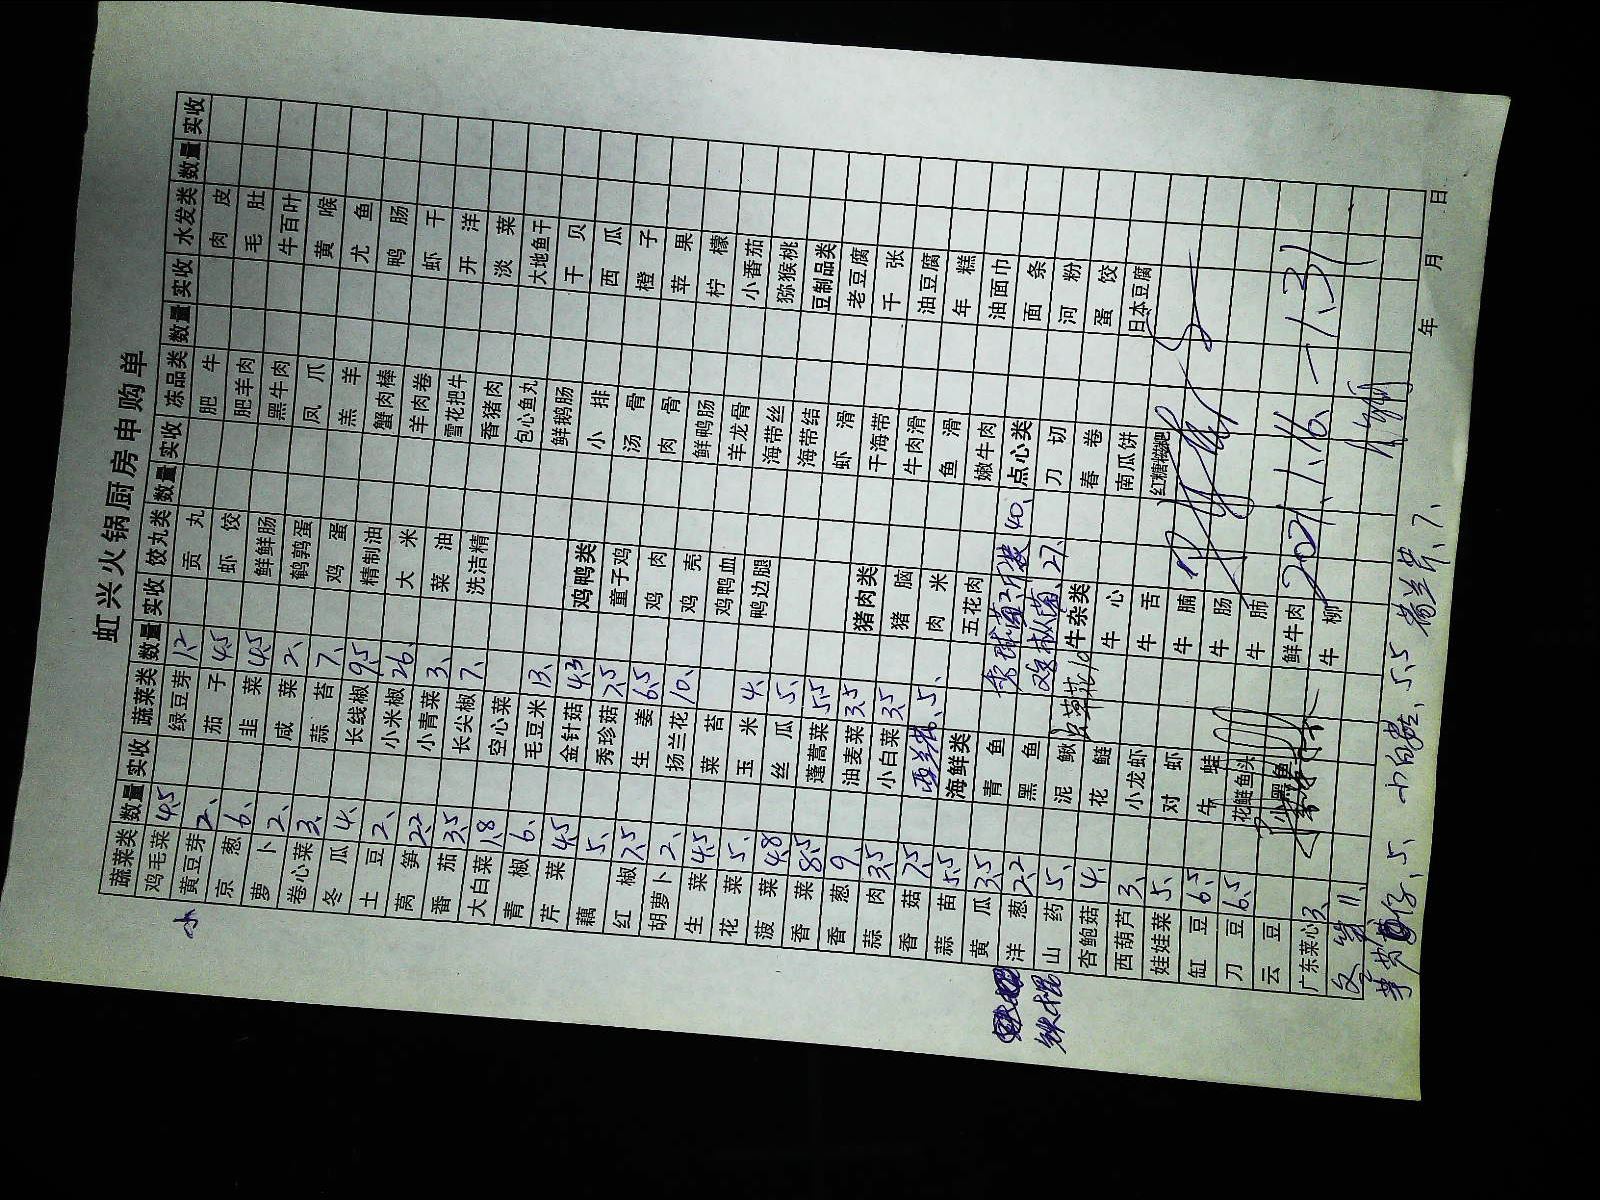 虹兴火锅厨房申购单
蔬菜类 数量 实收 蔬菜类 数量 实收 饺丸类 数量 实收 冻品类 数量 实收 水发类 数量 实收
小 鸡毛菜 4.5 绿豆芽 1.2 贡丸 肥牛 肉皮
黄豆芽 2、 茄子 4.5 虾饺 肥羊肉 毛肚
京葱 6、 韭菜 4.5 鲜鲜肠 黑牛肉 牛百叶
萝卜 2、 咸菜 2、 鹌鹑蛋 凤爪 黄喉
卷心菜 3、 蒜苔 7、 鸡蛋 羔羊 尤鱼
冬瓜 4、 长线椒 9.5 精制油 蟹肉棒 鸭肠
土豆 2、 小米椒 26、 大米 羊肉卷 虾干
莴笋 2.2 小青菜 3、 菜油 雪花把牛 开洋
番茄 3.5 长尖椒 7、 洗洁精 香猪肉 淡菜
大白菜 1.8 空心菜 包心鱼丸 大地鱼干
青椒 6、 毛豆米 13、 鲜鹅肠 干贝
芹菜 4.5 金针菇 4.3 鸡鸭类 小排 西瓜
藕 5、 秀珍菇 7.5 童子鸡 汤骨 橙子
红椒 7.5 生姜 6.5 鸡肉 肉骨 苹果
胡萝卜 2、 扬兰花 10、 鸡壳 鲜鸭肠 柠檬
生菜 4.5 菜苔 鸡鸭血 羊龙骨 小番茄
花菜 5、 玉米 4、 鸭边腿 海带丝 猕猴桃
菠菜 4.8 丝瓜 5、 海带结 豆制品类
香菜 8.5 蓬蒿菜 5.5 虾滑 老豆腐
香葱 9、 油麦菜 3.5 猪肉类 干海带 千张
蒜肉 3.5 小白菜 3.5 猪脑 牛肉滑 油豆腐
香菇 7.5 西兰花、5、 肉米 鱼滑 年糕
蒜苗 5.5 海鲜类 五花肉 嫩牛肉 油面巾
黄瓜 3.5 青鱼 40、 点心类 面条
洋葱 2.2 黑鱼 27、 刀切 河粉
铁棍 山药 5、 泥鳅 牛杂类 春卷 蛋饺
杏鲍菇 4、 花鲢 牛心 南瓜饼 日本豆腐
西葫芦 3、 小龙虾 牛舌 红糖糍粑
娃娃菜 5、 对虾 牛腩
缸豆 6.5 牛蛙 牛肠
刀豆 6.5 花鲢鱼头 牛肺
云豆 小黑鱼 鲜牛肉 2021.1.16.-1.31
广东菜心 3、 牛柳
11、
5、 5.5 荷兰芹、7、
年 月 日